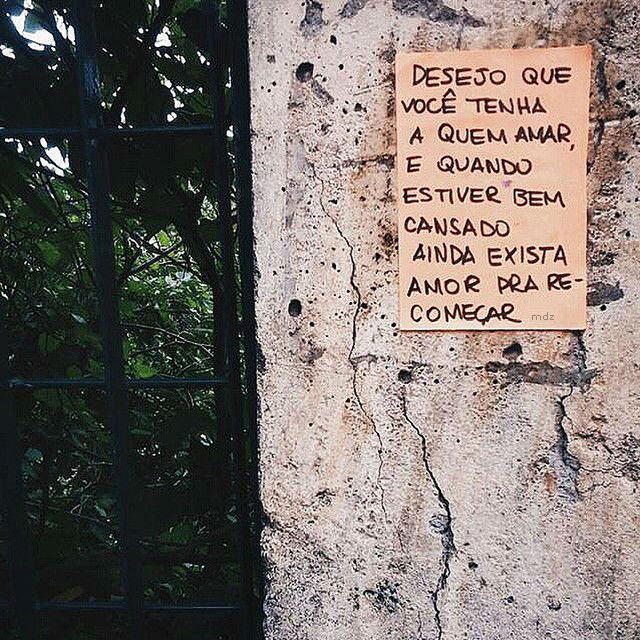 DESEJO QUE
VOCÊ TENHA
A QUEM AMAR,
E QUANDO
ESTIVER BEM
CANSADO
AINDA EXISTA
AMOR PRA RE-
COMEÇAR mdz